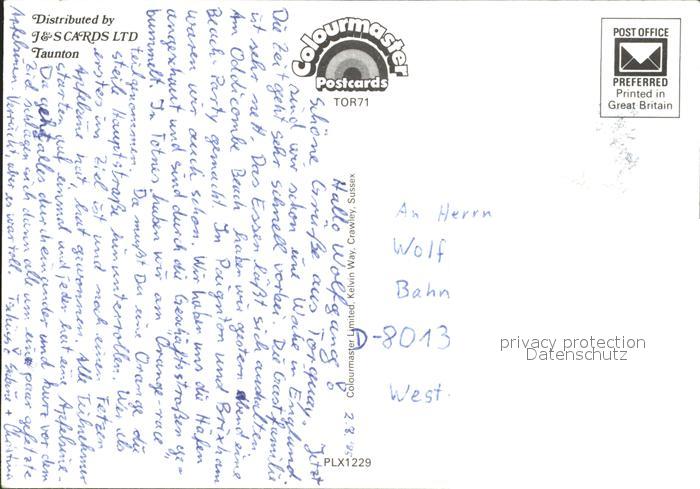 Distributed by
J&S CARDS LTD
Taunton
Colourmaster
Postcards
TOR71
POST OFFICE
PREFERRED
Printed in
Great Britain
Hallo Wolfgang!
Schöne Grüße aus Torquay. Jetzt
sind wir schon eine Woche in England
Die Zeit geht sehr schnell vorbei. Die Gastfamilie
ist sehr nett. Das Essen läßt sich aushalten.
Am Oddicombe Beach haben wir gestern Abend eine
Beach-Party gemacht. In Paignton und Brixham
waren wir auch schon. Wir haben uns die Häfen
angeschaut und sind durch die Geschäftsstraßen ge-
bummelt. In Totnes haben wir am Orange-race
teilgenommen. Da mußt Du eine Orange die
steile Hauptstraße hinunterrollen. Wer als
erstes im Ziel ist und noch einen Fetzen
Apfelsine hat, hat gewonnen. Alle Teilnehmer
starten auf einmal und jeder hat eine Apfelsine.
Da geht alles durcheinander und kurz vor dem
Ziel schlagen sich dann alle um ein paar gefetzte
Apfelsinen. Verrückt, aber es war toll. Tschüs, Sabine + Christina
Colourmaster Limited, Kelvin Way, Crawley, Sussex
PLX1229
An Herrn
Wolf
Bahn
D-8013
West
privacy protection
Datenschutz